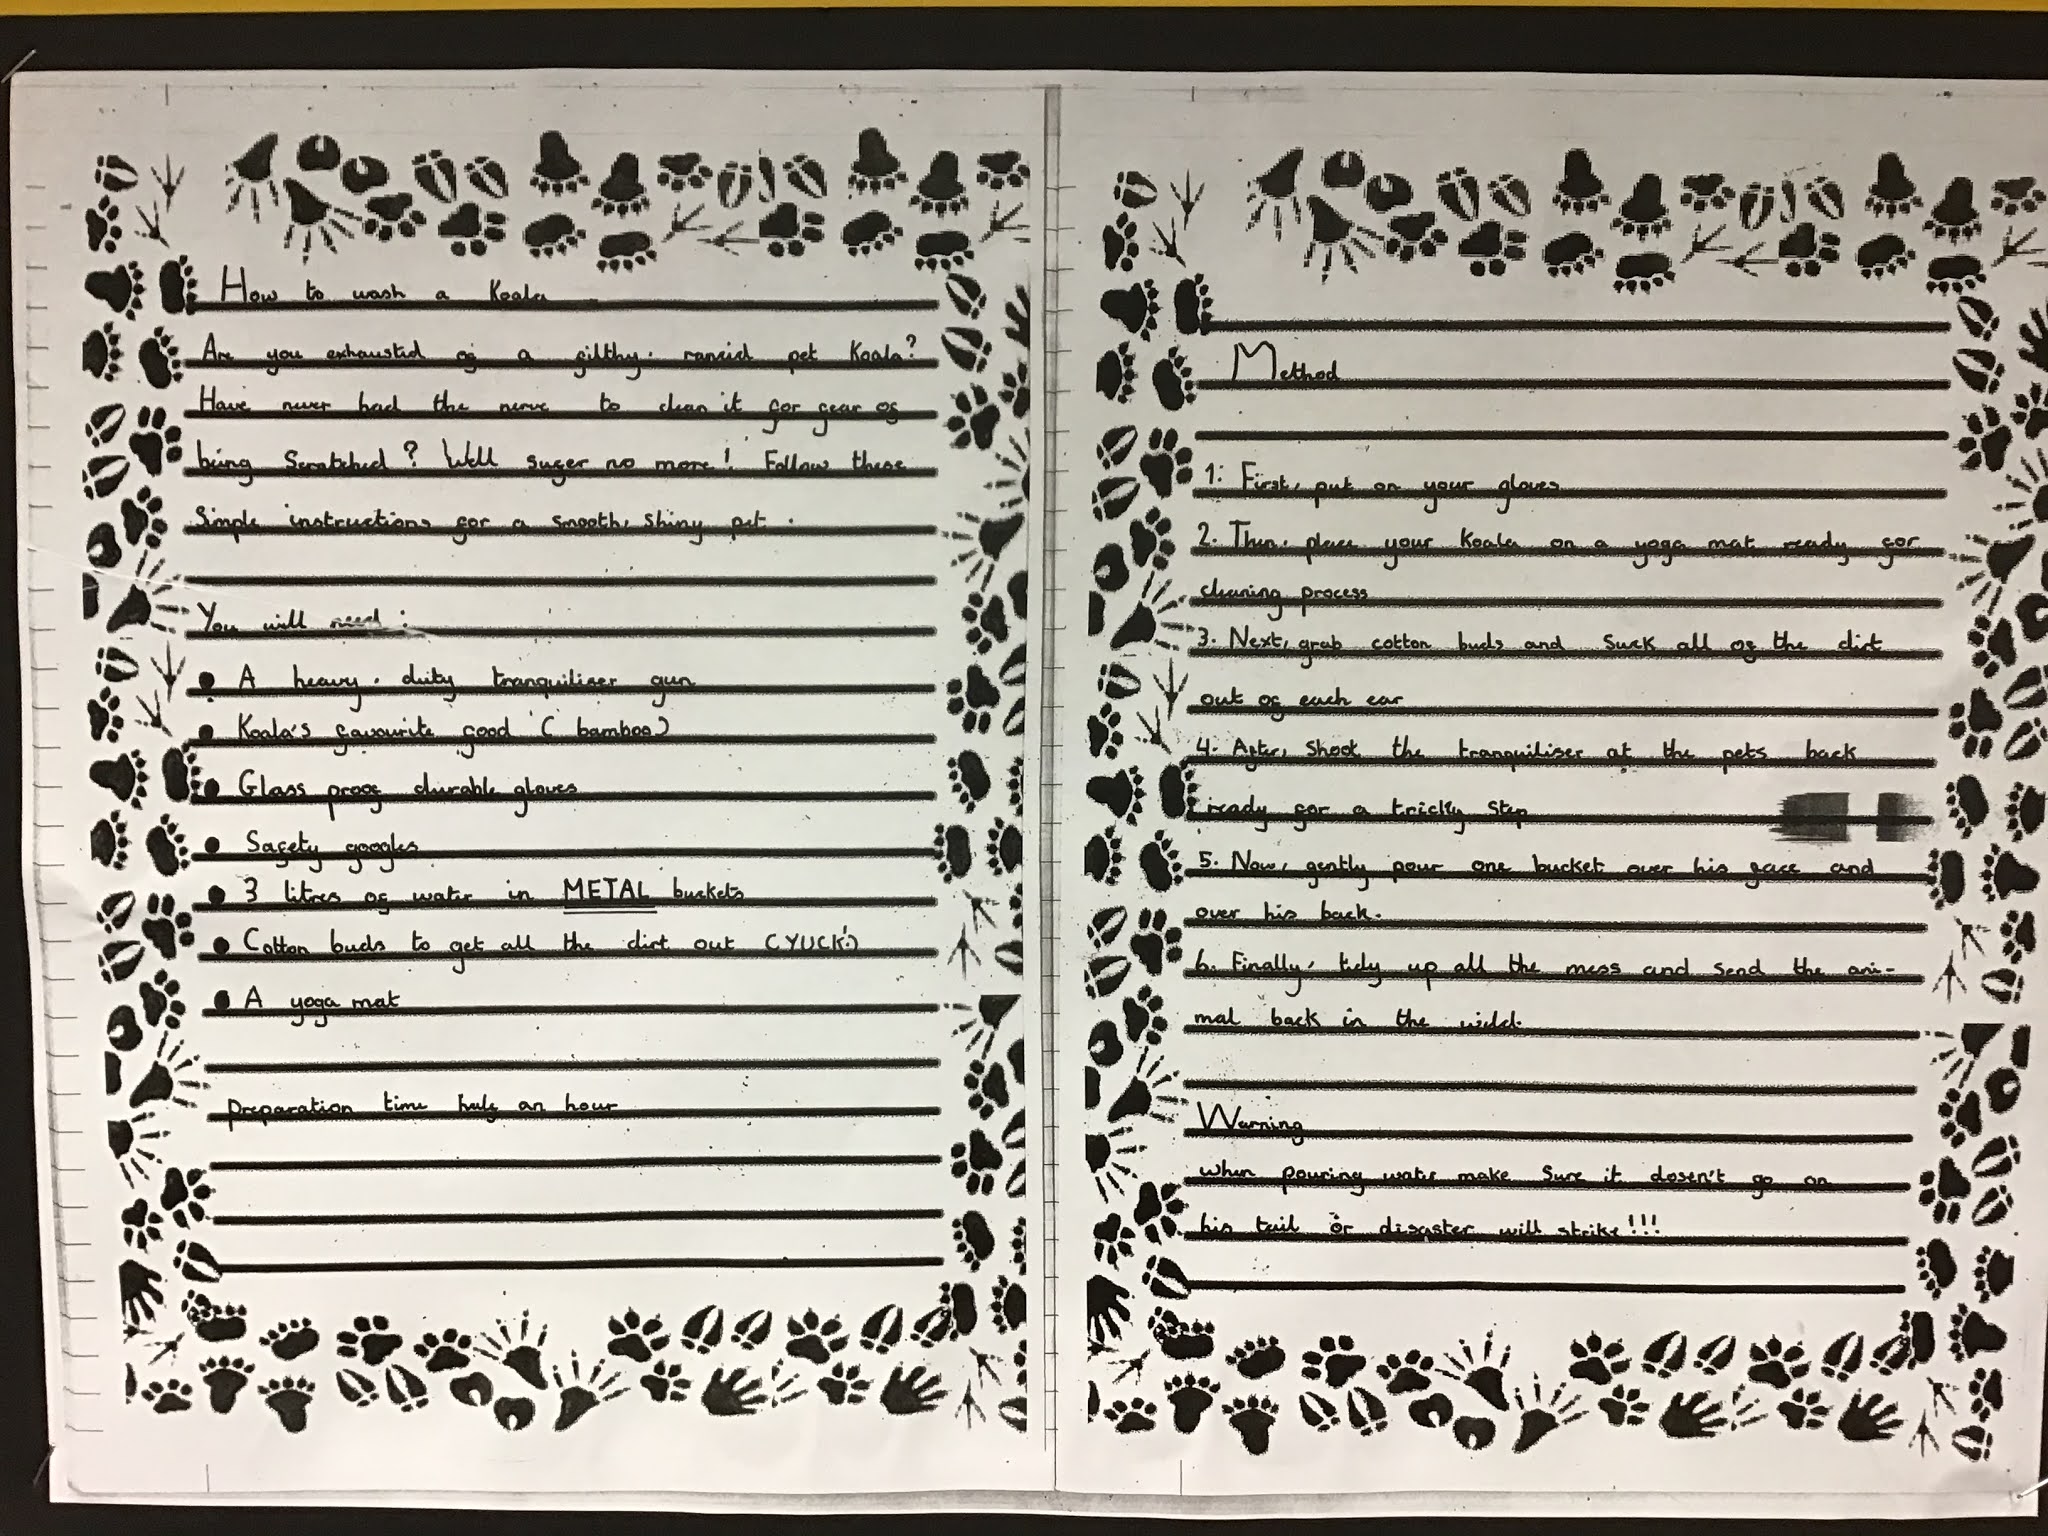 How to wash a Koala
Are you exhausted of a filthy, rancid pet Koala?
Have never had the nerve to clean it for fear of
being Scratched? Well suffer no more! Follow these
Simple instructions for a smooth, shiny pet.
You will need:
• A heavy-duty tranquiliser gun
• Koala's favourite food (bamboo)
• Glass proof durable gloves
• Safety googles
• 3 litres of water in METAL buckets
• Cotton buds to get all the dirt out (YUCK!)
• A yoga mat
Preparation time half an hour
Method
1: First, put on your gloves
2. Then, place your Koala on a yoga mat ready for
cleaning process
3. Next, grab cotton buds and suck all of the dirt
out of each ear
4. After, shoot the tranquiliser at the pets back
ready for a tricky step
5. Now, gently pour one bucket over his face and
over his back.
6. Finally, tidy up all the mess and send the ani-
mal back in the wild.
Warning
when pouring water make sure it dosen't go on
his tail or disaster will strike!!!